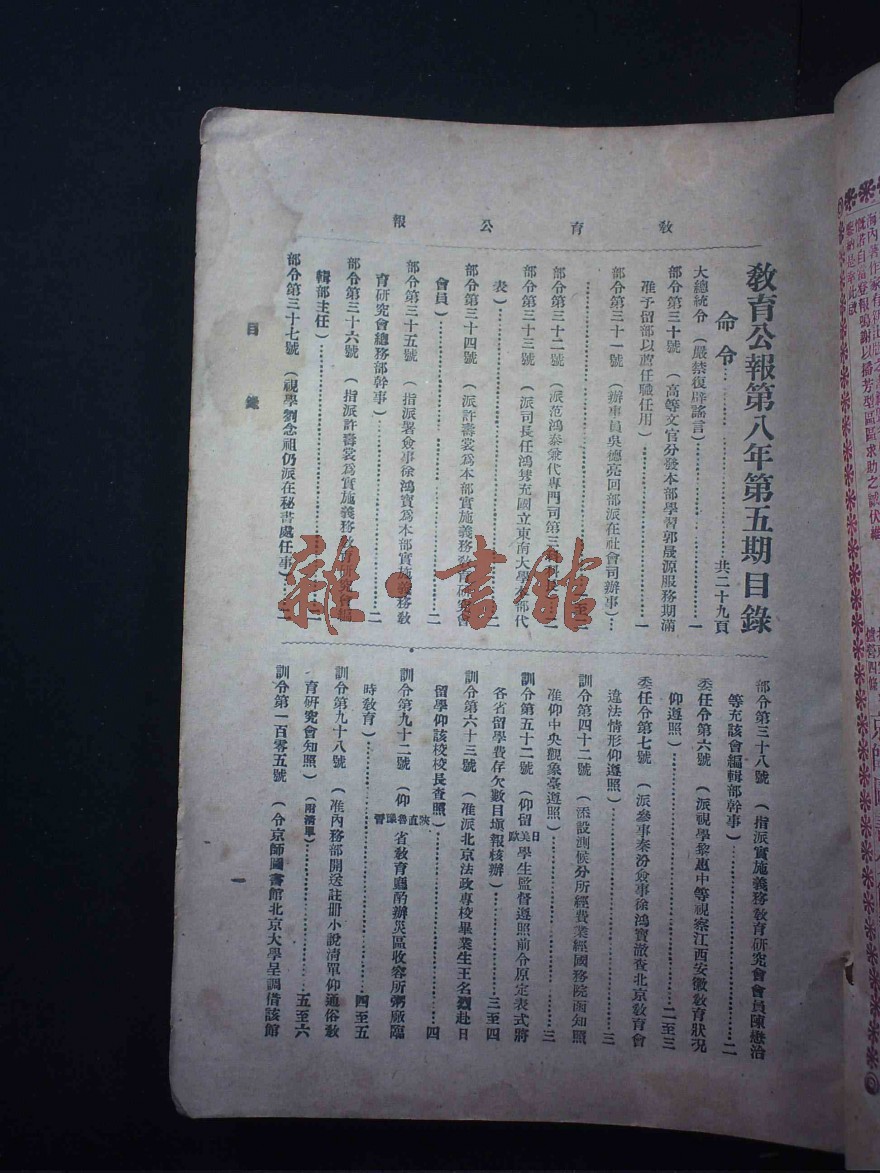 教育公報
教育公報第八年第五期目錄
命令……共二十九頁
大總統令（嚴禁復辟謠言）……一
部令第三十號（高等文官分發本部學習郭晟源服務期滿
准予留部以薦任職任用）……一
部令第三十一號（辦事員吳德亮回部派在社會司辦事）…
……一至二
部令第三十二號（派范鴻泰兼代專門司第三科科長）…二
部令第三十三號（派司長任鴻雋充國立東南大學本部代
表）……二
部令第三十四號（派許壽裳爲本部實施義務教育研究會
會員）……二
部令第三十五號（指派署僉事徐鴻寶爲本部實施義務教
育研究會總務部幹事）……二
部令第三十六號（指派許壽裳爲實施義務教育研究會編
輯部主任）……二
部令第三十七號（視學劉念祖仍派在秘書處任事）…二
部令第三十八號（指派實施義務教育研究會會員陳懋治
等充該會編輯部幹事）……二
委任令第六號（派視學黎惠中等視察江西安徽教育狀況
仰遵照）……二至三
委任令第七號（派參事秦汾僉事徐鴻寶澈查北京教育會
違法情形仰遵照）……三
訓令第四十二號（添設測候分所經費業經國務院函知照
准仰中央觀象臺遵照）……三
訓令第五十二號（仰留日美歐學生監督遵照前令原定表式將
各省留學費存欠數目塡報核辦）……三至四
訓令第六十三號（准派北京法政專校畢業生王名烈赴日
留學仰該校校長查照）……四
訓令第九十二號（仰陝直魯豫晉省教育廳酌辦災區收容所粥廠臨
時教育）……四至五
訓令第九十八號（准內務部開送註册小說清單仰通俗教
育研究會知照）（附清單）……五至六
訓令第一百零五號（令京師圖書館北京大學呈調借該館
目錄
一
雜·書館